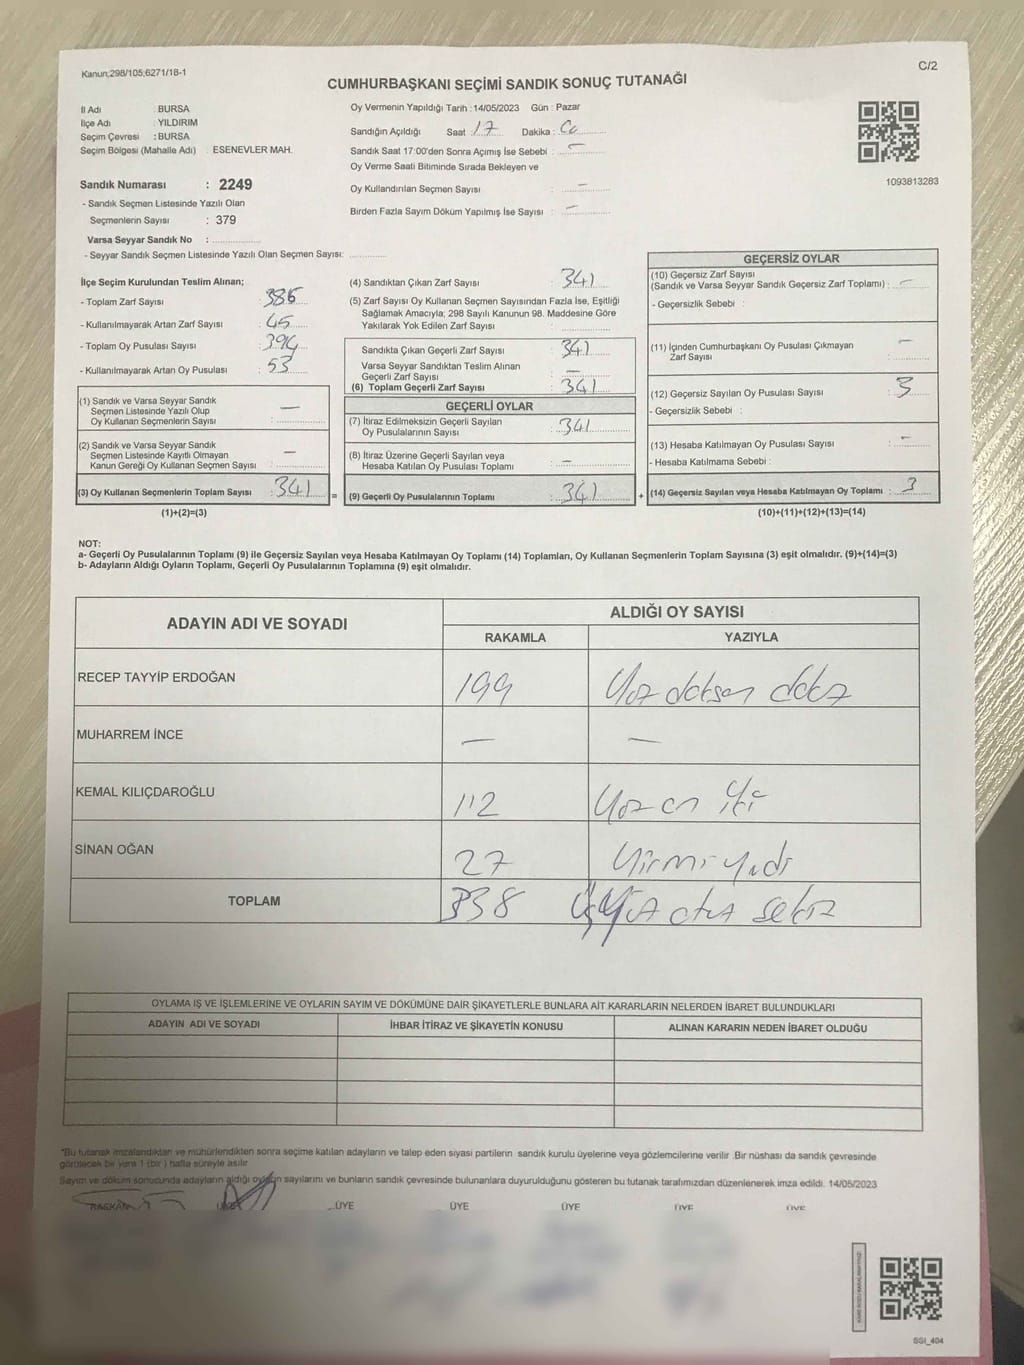 Kanun;298/105;6271/18-1
C/2
CUMHURBAŞKANI SEÇİMİ SANDIK SONUÇ TUTANAĞI
İl Adı : BURSA
İlçe Adı : YILDIRIM
Seçim Çevresi : BURSA
Seçim Bölgesi (Mahalle Adı) : ESENEVLER MAH.
Sandık Numarası : 2249
- Sandık Seçmen Listesinde Yazılı Olan
Seçmenlerin Sayısı : 379
Varsa Seyyar Sandık No :
- Seyyar Sandık Seçmen Listesinde Yazılı Olan Seçmen Sayısı:
Oy Vermenin Yapıldığı Tarih : 14/05/2023 Gün : Pazar
Sandığın Açıldığı Saat : 17 Dakika :
Sandık Saat 17:00'den Sonra Açımış İse Sebebi : —
Oy Verme Saati Bitiminde Sırada Bekleyen ve
Oy Kullandırılan Seçmen Sayısı : —
Birden Fazla Sayım Döküm Yapılmış İse Sayısı : —
1093813283
İlçe Seçim Kurulundan Teslim Alınan;
- Toplam Zarf Sayısı : 386
- Kullanılmayarak Artan Zarf Sayısı : 45
- Toplam Oy Pusulası Sayısı : 394
- Kullanılmayarak Artan Oy Pusulası : 53
(1) Sandık ve Varsa Seyyar Sandık
Seçmen Listesinde Yazılı Olup
Oy Kullanan Seçmenlerin Sayısı : —
(2) Sandık ve Varsa Seyyar Sandık
Seçmen Listesinde Kayıtlı Olmayan
Kanun Gereği Oy Kullanan Seçmen Sayısı : —
(3) Oy Kullanan Seçmenlerin Toplam Sayısı : 341
(1)+(2)=(3)
(4) Sandıktan Çıkan Zarf Sayısı : 341
(5) Zarf Sayısı Oy Kullanan Seçmen Sayısından Fazla İse, Eşitliği
Sağlamak Amacıyla; 298 Sayılı Kanunun 98. Maddesine Göre
Yakılarak Yok Edilen Zarf Sayısı :
Sandıkta Çıkan Geçerli Zarf Sayısı : 341
Varsa Seyyar Sandıktan Teslim Alınan
Geçerli Zarf Sayısı : —
(6) Toplam Geçerli Zarf Sayısı : 341
GEÇERLİ OYLAR
(7) İtiraz Edilmeksizin Geçerli Sayılan
Oy Pusulalarının Sayısı : 341
(8) İtiraz Üzerine Geçerli Sayılan veya
Hesaba Katılan Oy Pusulası Toplamı : —
= (9) Geçerli Oy Pusulalarının Toplamı : 341 +
GEÇERSİZ OYLAR
(10) Geçersiz Zarf Sayısı
(Sandık ve Varsa Seyyar Sandık Geçersiz Zarf Toplamı) : —
- Geçersizlik Sebebi :
(11) İçinden Cumhurbaşkanı Oy Pusulası Çıkmayan
Zarf Sayısı : —
(12) Geçersiz Sayılan Oy Pusulası Sayısı : 3
- Geçersizlik Sebebi :
(13) Hesaba Katılmayan Oy Pusulası Sayısı : —
- Hesaba Katılmama Sebebi :
(14) Geçersiz Sayılan veya Hesaba Katılmayan Oy Toplamı : 3
(10)+(11)+(12)+(13)=(14)
NOT:
a- Geçerli Oy Pusulalarının Toplamı (9) ile Geçersiz Sayılan veya Hesaba Katılmayan Oy Toplamı (14) Toplamları, Oy Kullanan Seçmenlerin Toplam Sayısına (3) eşit olmalıdır. (9)+(14)=(3)
b- Adayların Aldığı Oyların Toplamı, Geçerli Oy Pusulalarının Toplamına (9) eşit olmalıdır.
ADAYIN ADI VE SOYADI
ALDIĞI OY SAYISI
RAKAMLA YAZIYLA
RECEP TAYYİP ERDOĞAN 199 Yüz doksan dokuz
MUHARREM İNCE — —
KEMAL KILIÇDAROĞLU 112 Yüz on iki
SİNAN OĞAN 27 Yirmi yedi
TOPLAM 338 Üç Yüz otuz sekiz
OYLAMA İŞ VE İŞLEMLERİNE VE OYLARIN SAYIM VE DÖKÜMÜNE DAİR ŞİKAYETLERLE BUNLARA AİT KARARLARIN NELERDEN İBARET BULUNDUKLARI
ADAYIN ADI VE SOYADI İHBAR İTİRAZ VE ŞİKAYETİN KONUSU ALINAN KARARIN NEDEN İBARET OLDUĞU
*Bu tutanak imzalandıktan ve mühürlendikten sonra seçime katılan adayların ve talep eden siyasi partilerin sandık kurulu üyelerine veya gözlemcilerine verilir .Bir nüshası da sandık çevresinde
görülecek bir yere 1 (bir ) hafta süreyle asılır
Sayım ve döküm sonucunda adayların aldığı oyların sayılarını ve bunların sandık çevresinde bulunanlara duyurulduğunu gösteren bu tutanak tarafımızdan düzenlenerek imza edildi. 14/05/2023
BAŞKAN ÜYE ÜYE ÜYE ÜYE ÜYE
SSI_404